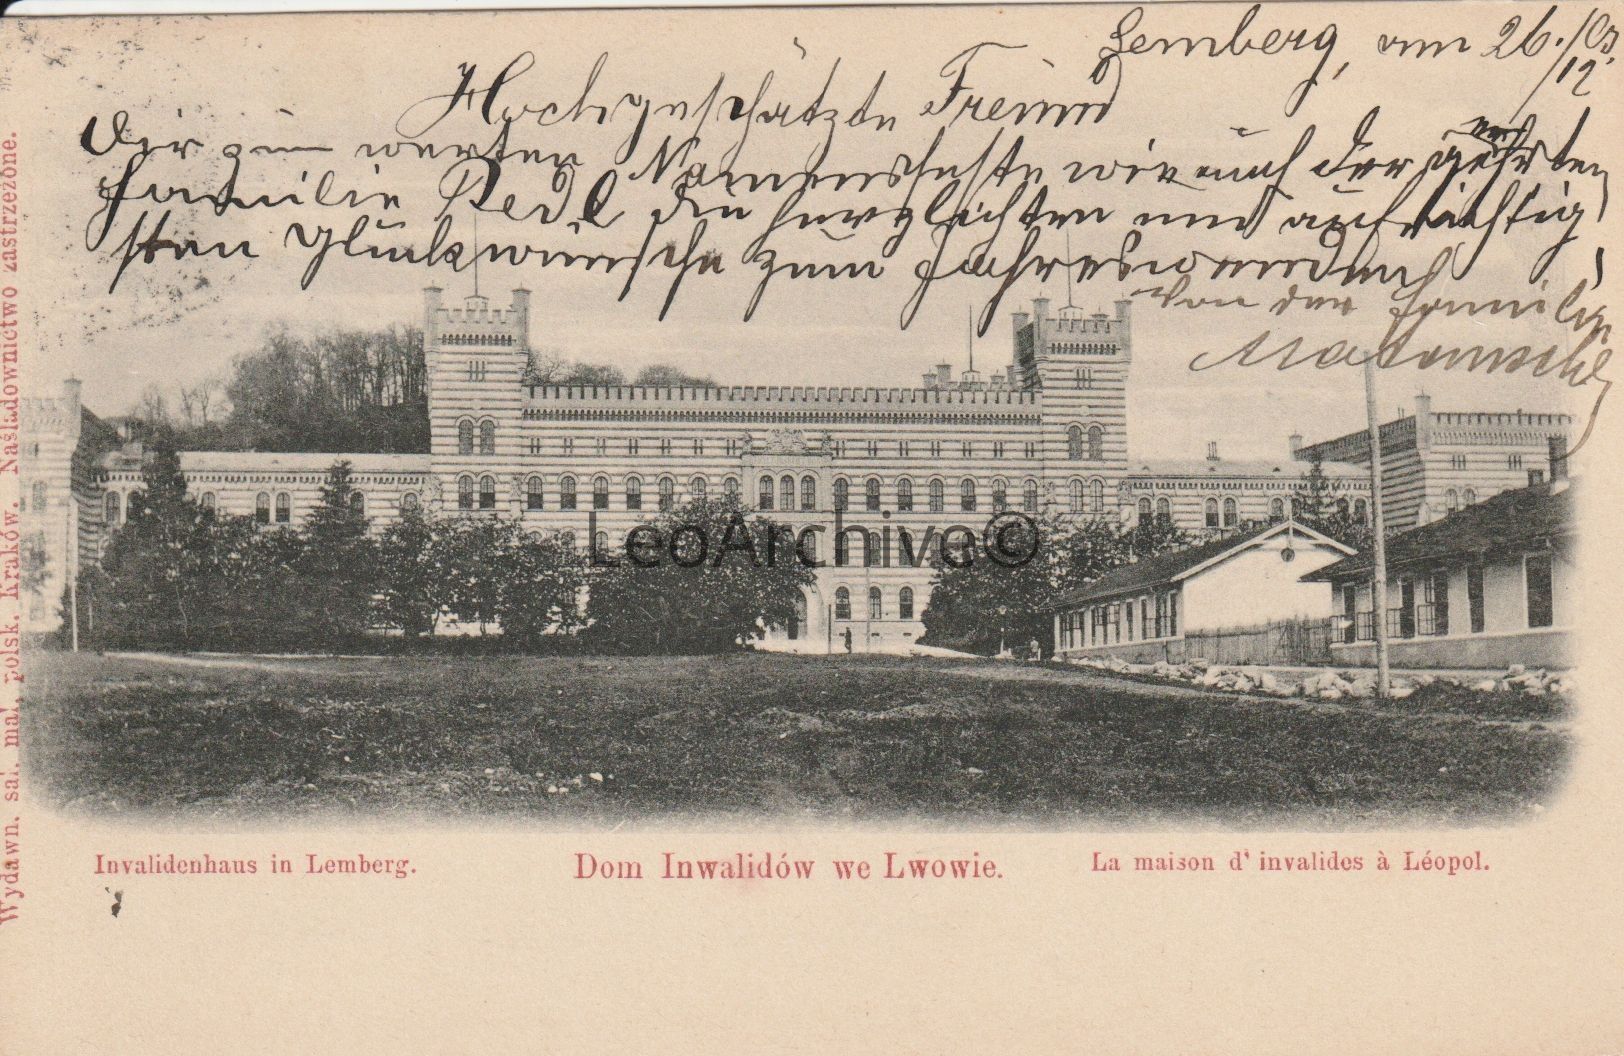 Lemberg, am 26./12 03.
Hochgeschätzte Freund
Dir zum werten Namensfeste wie auch der geehrten
Familie Redl die herzlichsten und aufrichtig
sten Glückwünsche zum Jahreswenden
von der Familie
Wydawn. sal. mal. polsk. Kraków. Naśladownictwo zastrzeżone.
LeoArchive©
Invalidenhaus in Lemberg.
Dom Inwalidów we Lwowie.
La maison d' invalides à Léopol.